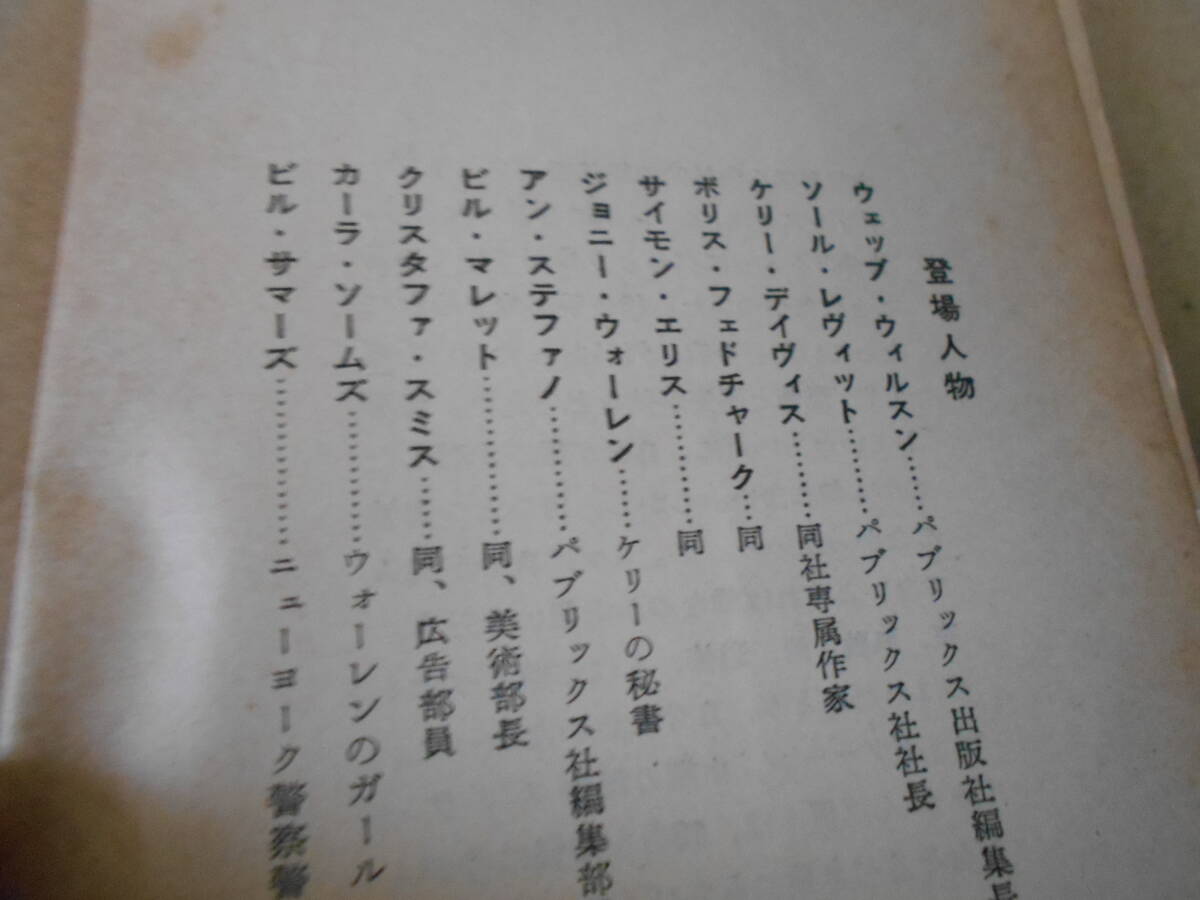 登場人物
ウェッブ・ウィルスン……パブリックス出版社編集長
ソール・レヴィット………パブリックス社社長
ケリー・デイヴィス………同社専属作家
ボリス・フェドチャーク…同
サイモン・エリス…………同
ジョニー・ウォーレン……ケリーの秘書
アン・ステファノ…………パブリックス社編集部
ビル・マレット……………同、美術部長
クリスタファ・スミス……同、広告部員
カーラ・ソームズ…………ウォーレンのガール
ビル・サマーズ……………ニューヨーク警察警